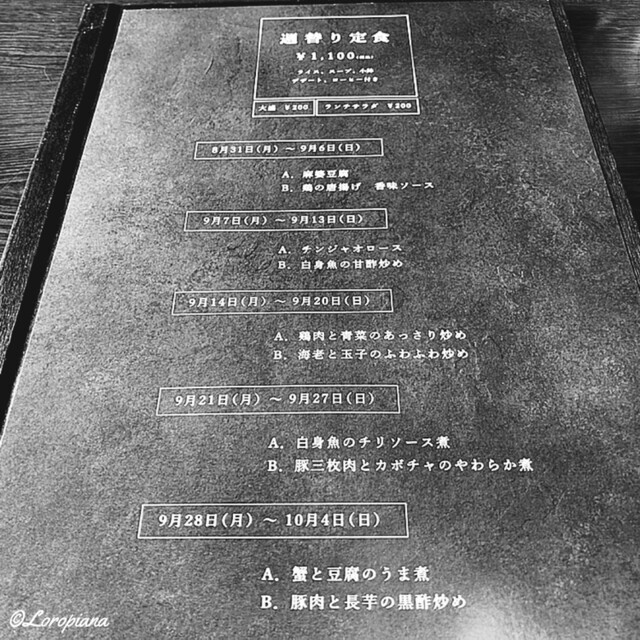 週替り定食
¥1,100(税込)
ライス、スープ、小鉢
デザート、コーヒー付き
大盛 ¥200
ランチサラダ ¥200
8月31日(月) ～ 9月6日(日)
A. 麻婆豆腐
B. 鶏の唐揚げ 香味ソース
9月7日(月) ～ 9月13日(日)
A. チンジャオロース
B. 白身魚の甘酢炒め
9月14日(月) ～ 9月20日(日)
A. 鶏肉と青菜のあっさり炒め
B. 海老と玉子のふわふわ炒め
9月21日(月) ～ 9月27日(日)
A. 白身魚のチリソース煮
B. 豚三枚肉とカボチャのやわらか煮
9月28日(月) ～ 10月4日(日)
A. 蟹と豆腐のうま煮
B. 豚肉と長芋の黒酢炒め
©Loropiana